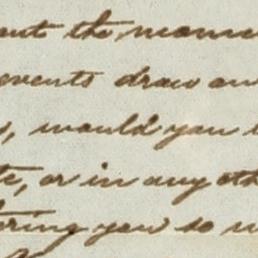 out the manne
events draw an
, would you
te, or in any oth
ering you so